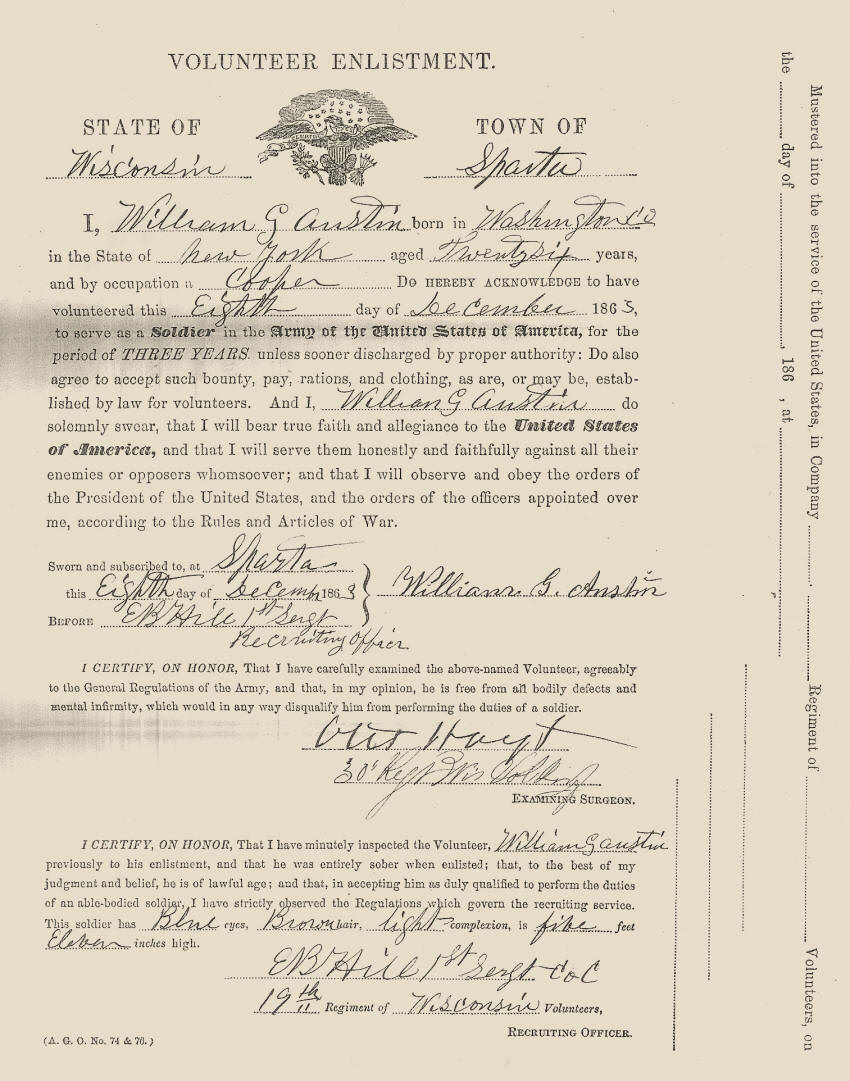 VOLUNTEER ENLISTMENT.
STATE OF
TOWN OF
Wisconsin
Sparta
I, William G Austin born in Washington Co
in the State of New York aged Twentysix years,
and by occupation a Cooper DO HEREBY ACKNOWLEDGE to have
volunteered this Eighth day of December 1863,
to serve as a Soldier in the Army of the United States of America, for the
period of THREE YEARS, unless sooner discharged by proper authority: Do also
agree to accept such bounty, pay, rations, and clothing, as are, or may be, estab-
lished by law for volunteers. And I, William G Austin do
solemnly swear, that I will bear true faith and allegiance to the United States
of America, and that I will serve them honestly and faithfully against all their
enemies or opposers whomsoever; and that I will observe and obey the orders of
the President of the United States, and the orders of the officers appointed over
me, according to the Rules and Articles of War.
Sworn and subscribed to, at Sparta
this Eighth day of Decemb 1863
William. G. Austin
BEFORE EB Hill 1st Sergt
Recruiting Officer
I CERTIFY, ON HONOR, That I have carefully examined the above-named Volunteer, agreeably
to the General Regulations of the Army, and that, in my opinion, he is free from all bodily defects and
mental infirmity, which would in any way disqualify him from performing the duties of a soldier.
Otis Hoyt
30th Regt Wis
EXAMINING SURGEON.
I CERTIFY, ON HONOR, That I have minutely inspected the Volunteer, William G Austin
previously to his enlistment, and that he was entirely sober when enlisted; that, to the best of my
judgment and belief, he is of lawful age; and that, in accepting him as duly qualified to perform the duties
of an able-bodied soldier, I have strictly observed the Regulations which govern the recruiting service.
This soldier has Blue eyes, Brown hair, light complexion, is five feet
Eleven inches high.
EB Hill 1st Sergt Co C
19th Regiment of Wisconsin Volunteers,
RECRUITING OFFICER.
(A. G. O. No. 74 & 76.)
Mustered into the service of the United States, in Company Regiment of Volunteers, on
the day of , 186 , at